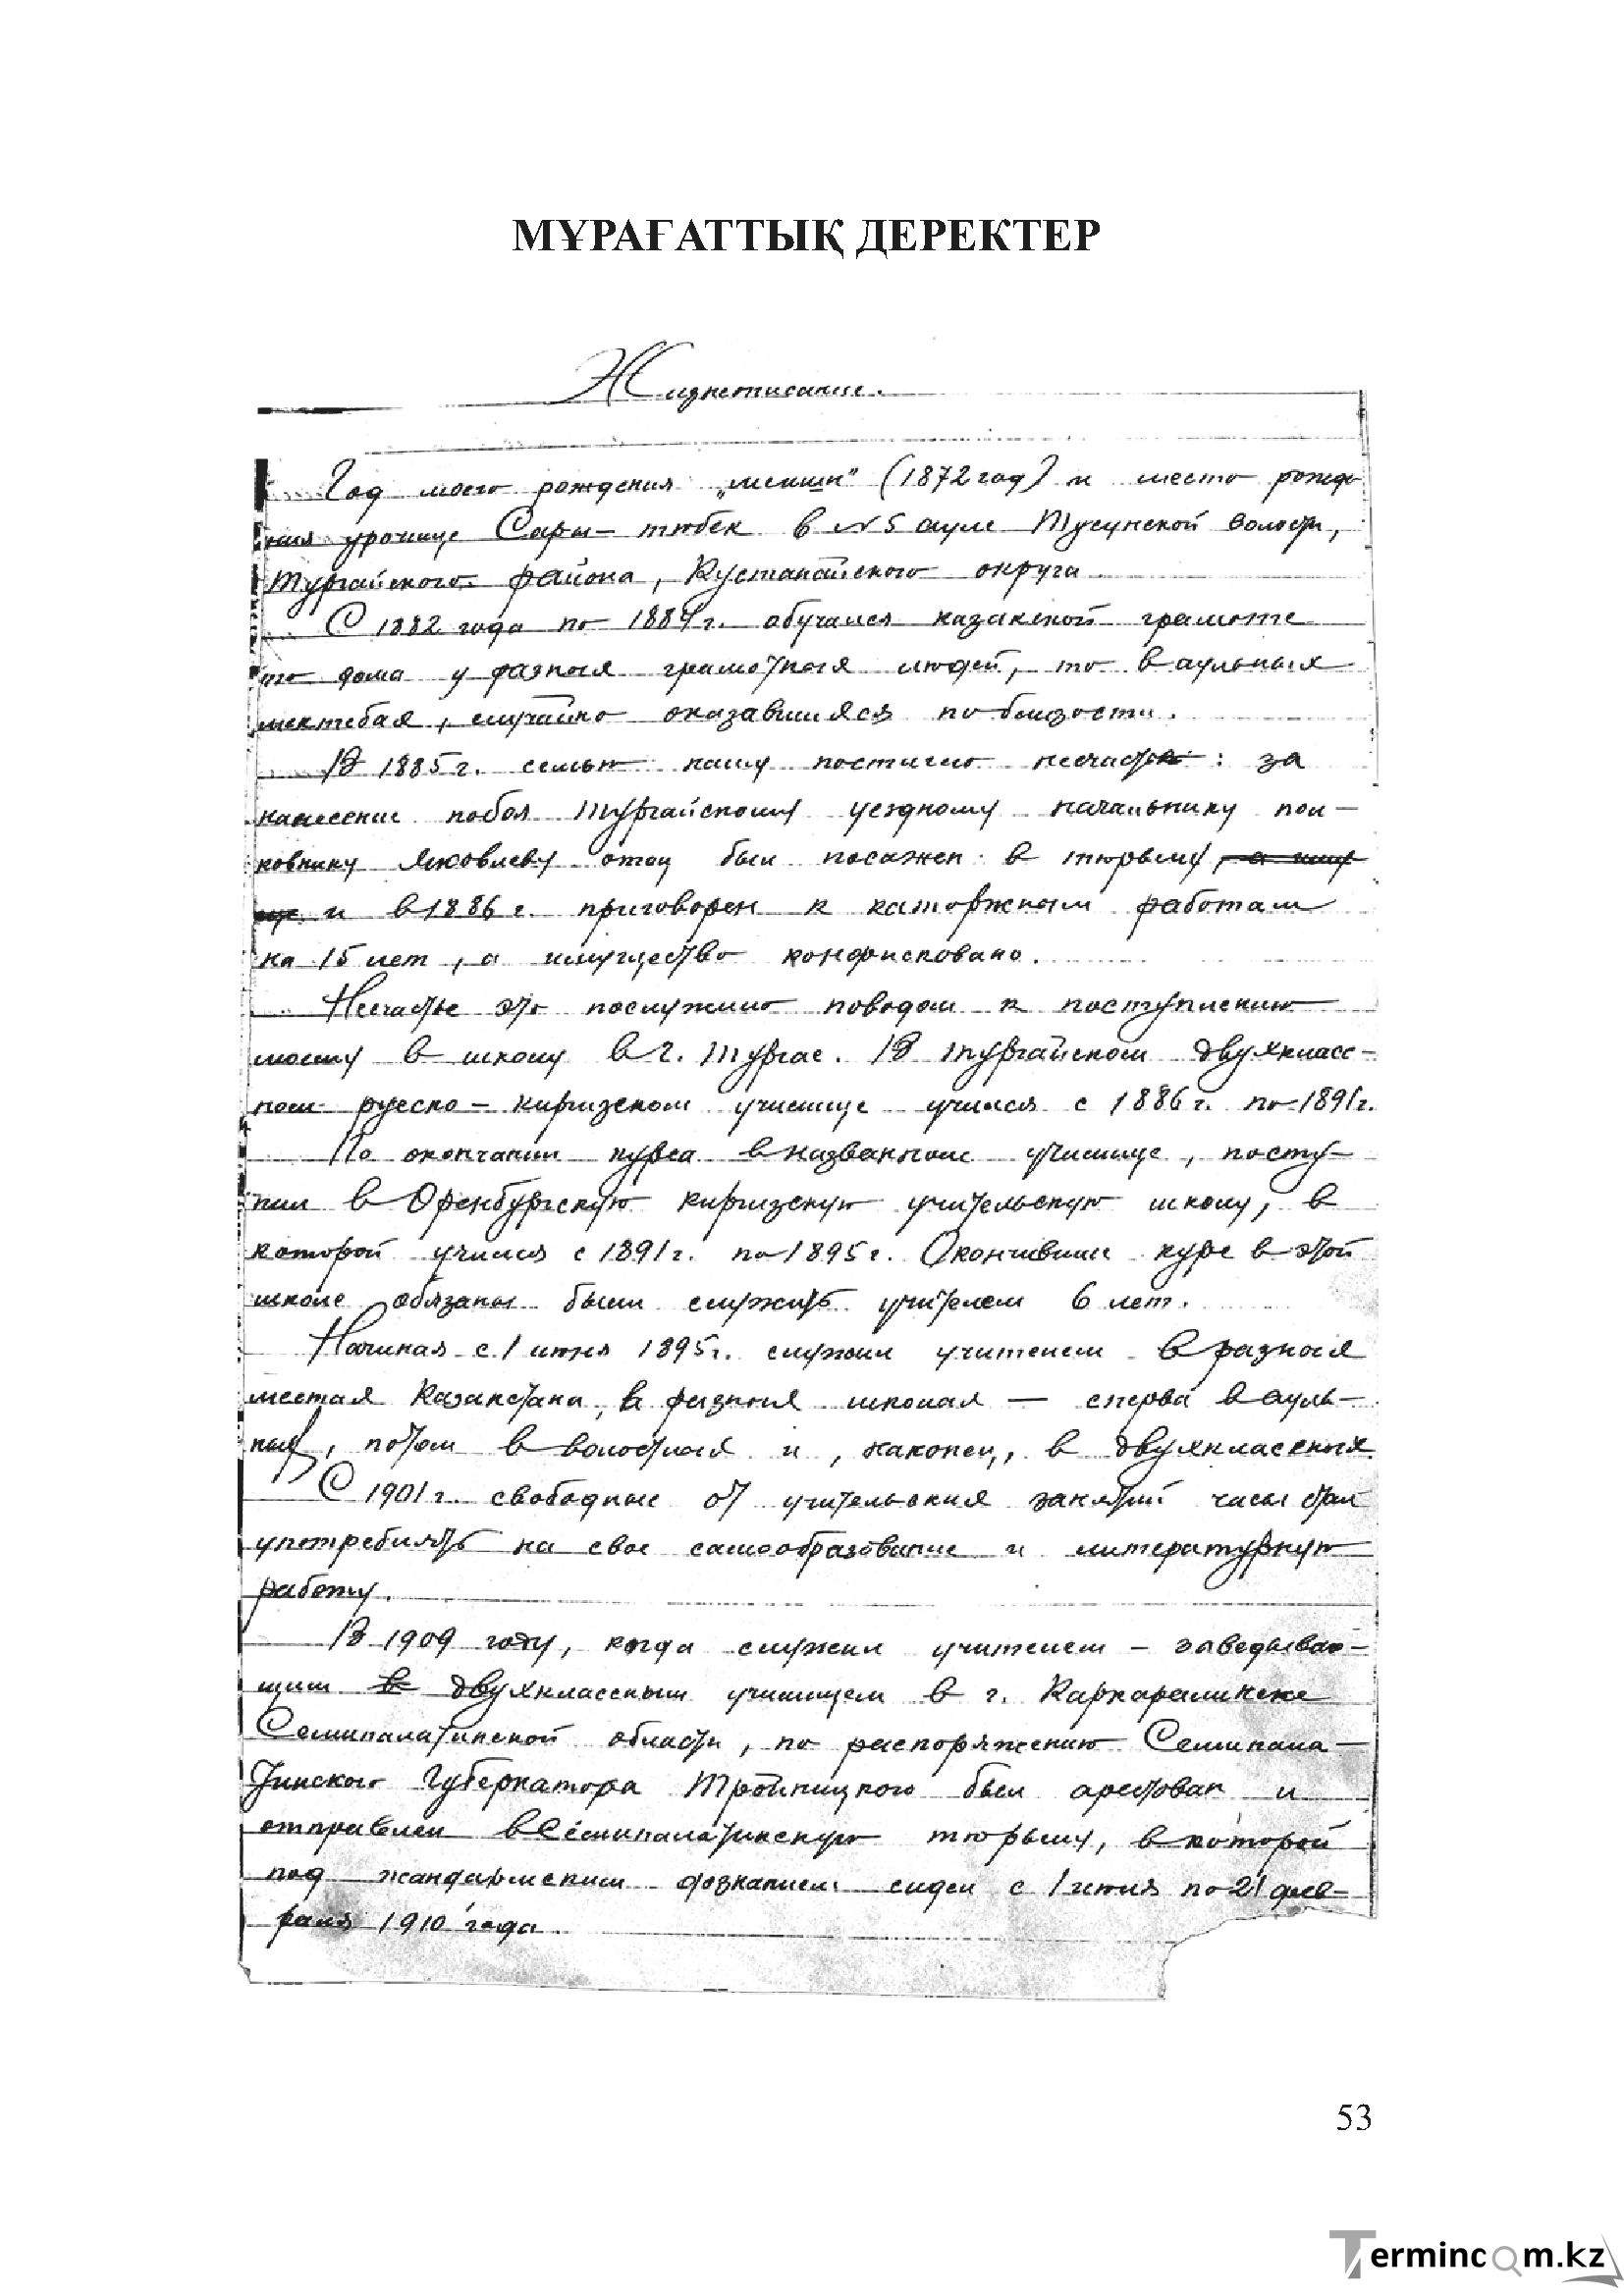 МҰРАҒАТТЫҚ ДЕРЕКТЕР
Жизнеописание.
Год моего рождения „мешин" (1872 год) и место рожде-
ния урочище Сары-тюбек в №5 ауле Тусунской волости,
Тургайского района, Кустанайского округа
С 1882 года по 1884 г. обучался казакской грамоте
то дома у разных грамотных людей, то в аульных
мектебах, случайно оказавшихся по близости.
В 1885 г. семью нашу постигло несчастье: за
нанесение побоя Тургайскому уездному начальнику пол-
ковнику Яковлеву отец был посажен в тюрьму,
и в 1886 г. приговорен к каторжным работам
на 15 лет, а имущество конфисковано.
Несчастье это послужило поводом к поступлению
моему в школу в г. Тургае. В Тургайском двухкласс-
ном русско-киргизском училище учился с 1886 г. по 1891 г.
По окончании курса в названном училище, посту-
пил в Оренбургскую киргизскую учительскую школу, в
которой учился с 1891 г. по 1895 г. Окончившие курс в этой
школе обязаны были служить учителем 6 лет.
Начиная с 1 июня 1895 г. служил учителем в разных
местах Казакстана, в разных школах — сперва в ауль-
ных, потом в волостных и, наконец, в двухклассных
С 1901 г. свободные от учительских занятий часы стал
употреблять на свое самообразование и литературную
работу.
В 1909 году, когда служил учителем - заведываю-
щим в двухклассным училищем в г. Каркаралинске
Семипалатинской области, по распоряжению Семипала-
тинского Губернатора Тройницкого был арестован и
отправлен в Семипалатинскую тюрьму, в которой
под жандармским дознанием сидел с 1 июля по 21 фев-
раля 1910 года.
53
Termincom.kz